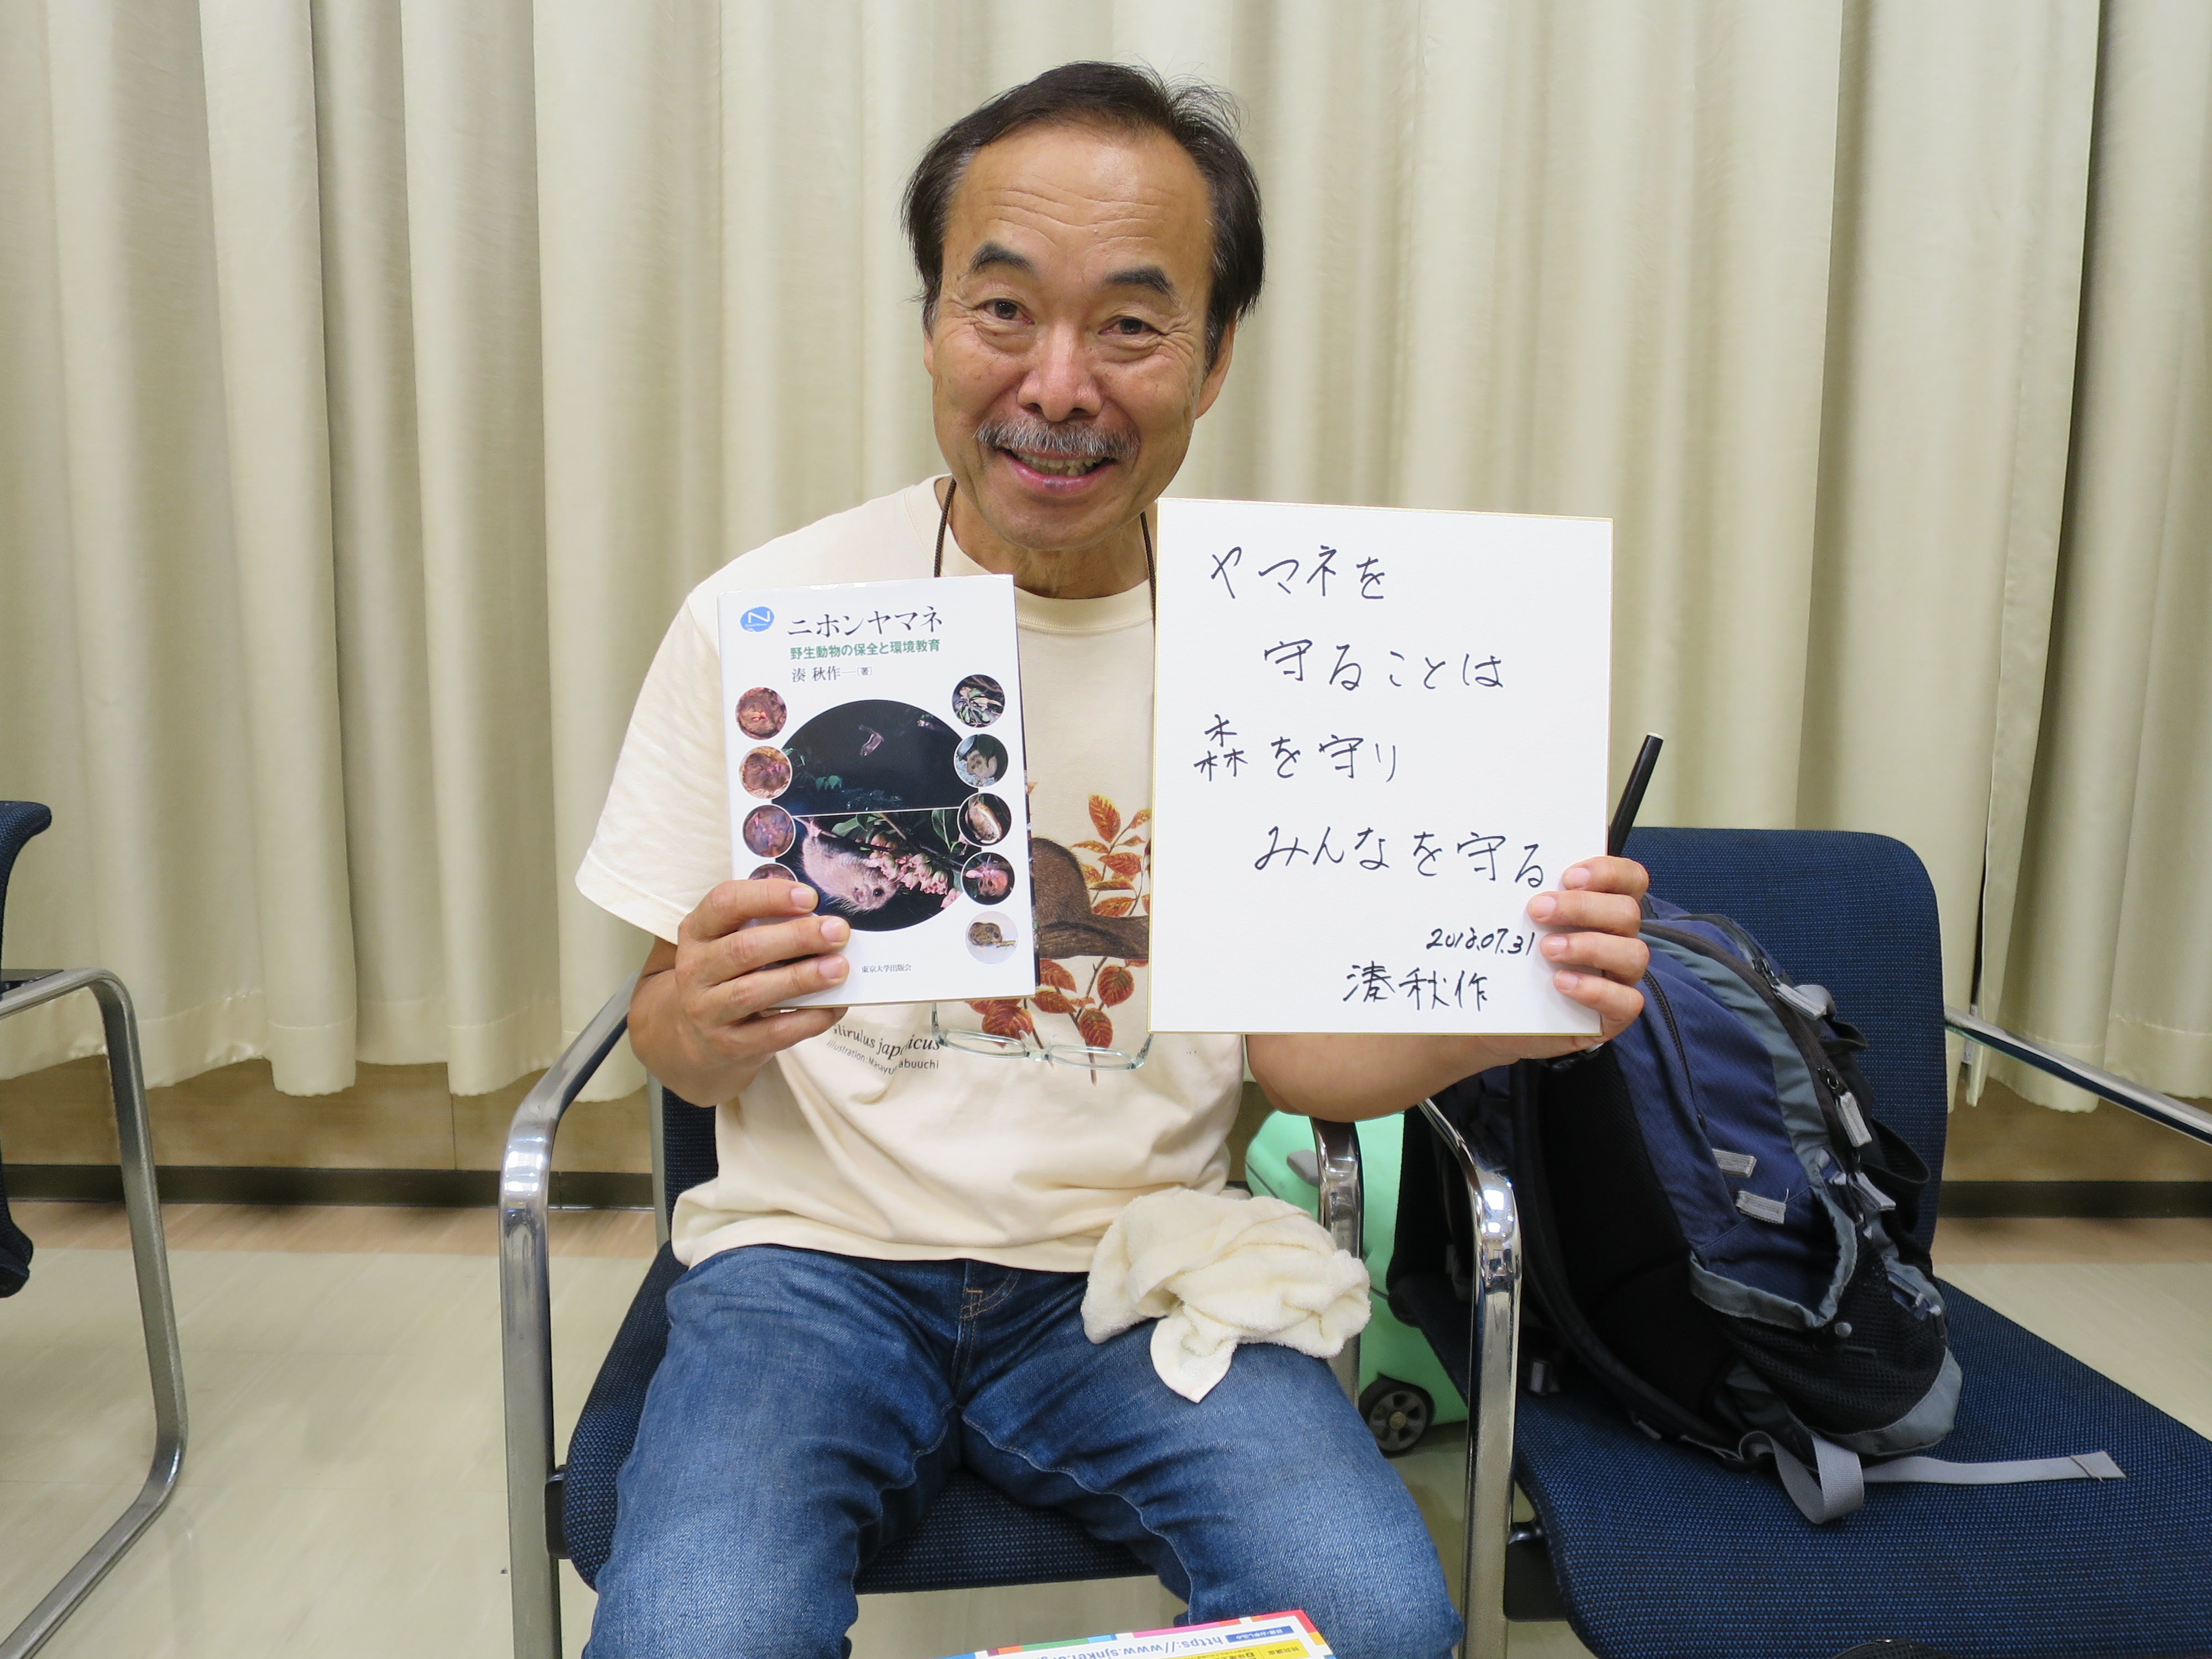 ニホンヤマネ
野生動物の保全と環境教育
湊 秋作―[著]
東京大学出版会
ヤマネを
守ることは
森を守り
みんなを守る
2018.07.31
湊秋作
https://www.sjnkef.org